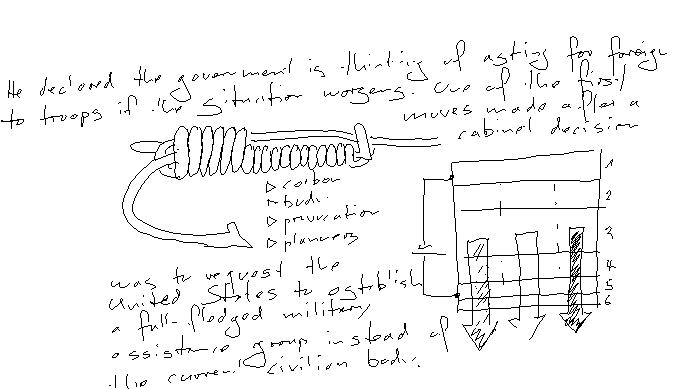 He declared the government is thinking of asking for foreign
to troops if the situation worsens. One of the first
moves made after a
cabinet decision
▷ carbon
▷ bodi
▷ provocation
▷ planners
1
2
3
4
5
6
was to request the
United States to establish
a full-fledged military
assistance group instead of
the current civilian body.